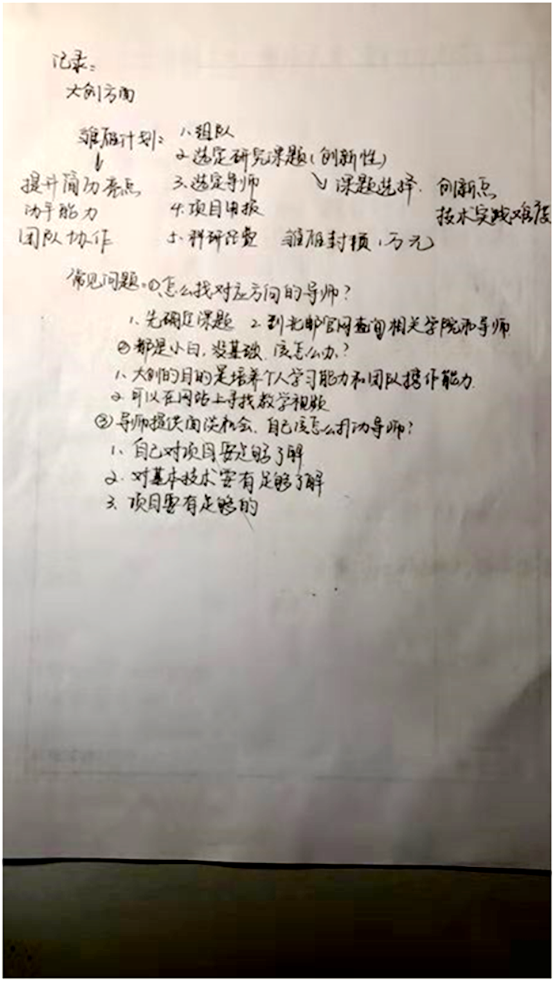 记录：
大创方面
雏雁计划： 1、组队
2、选定研究课题（创新性）
提升简历亮点 3、选定导师 课题选择、创新点
动手能力 4、项目申报 技术实践难度
团队协作 5、科研经费 雏雁封顶1万元
常见问题：①怎么找对应方向的导师？
1、先确定课题 2、到北邮官网查询相关学院和导师
②都是小白，没基础，该怎么办？
1、大创的目的是培养个人学习能力和团队携作能力
2、可以在网站上寻找教学视频
③导师提供面谈机会，自己该怎么打动导师？
1、自己对项目要足够了解
2、对基本技术要有足够了解
3、项目要有足够的